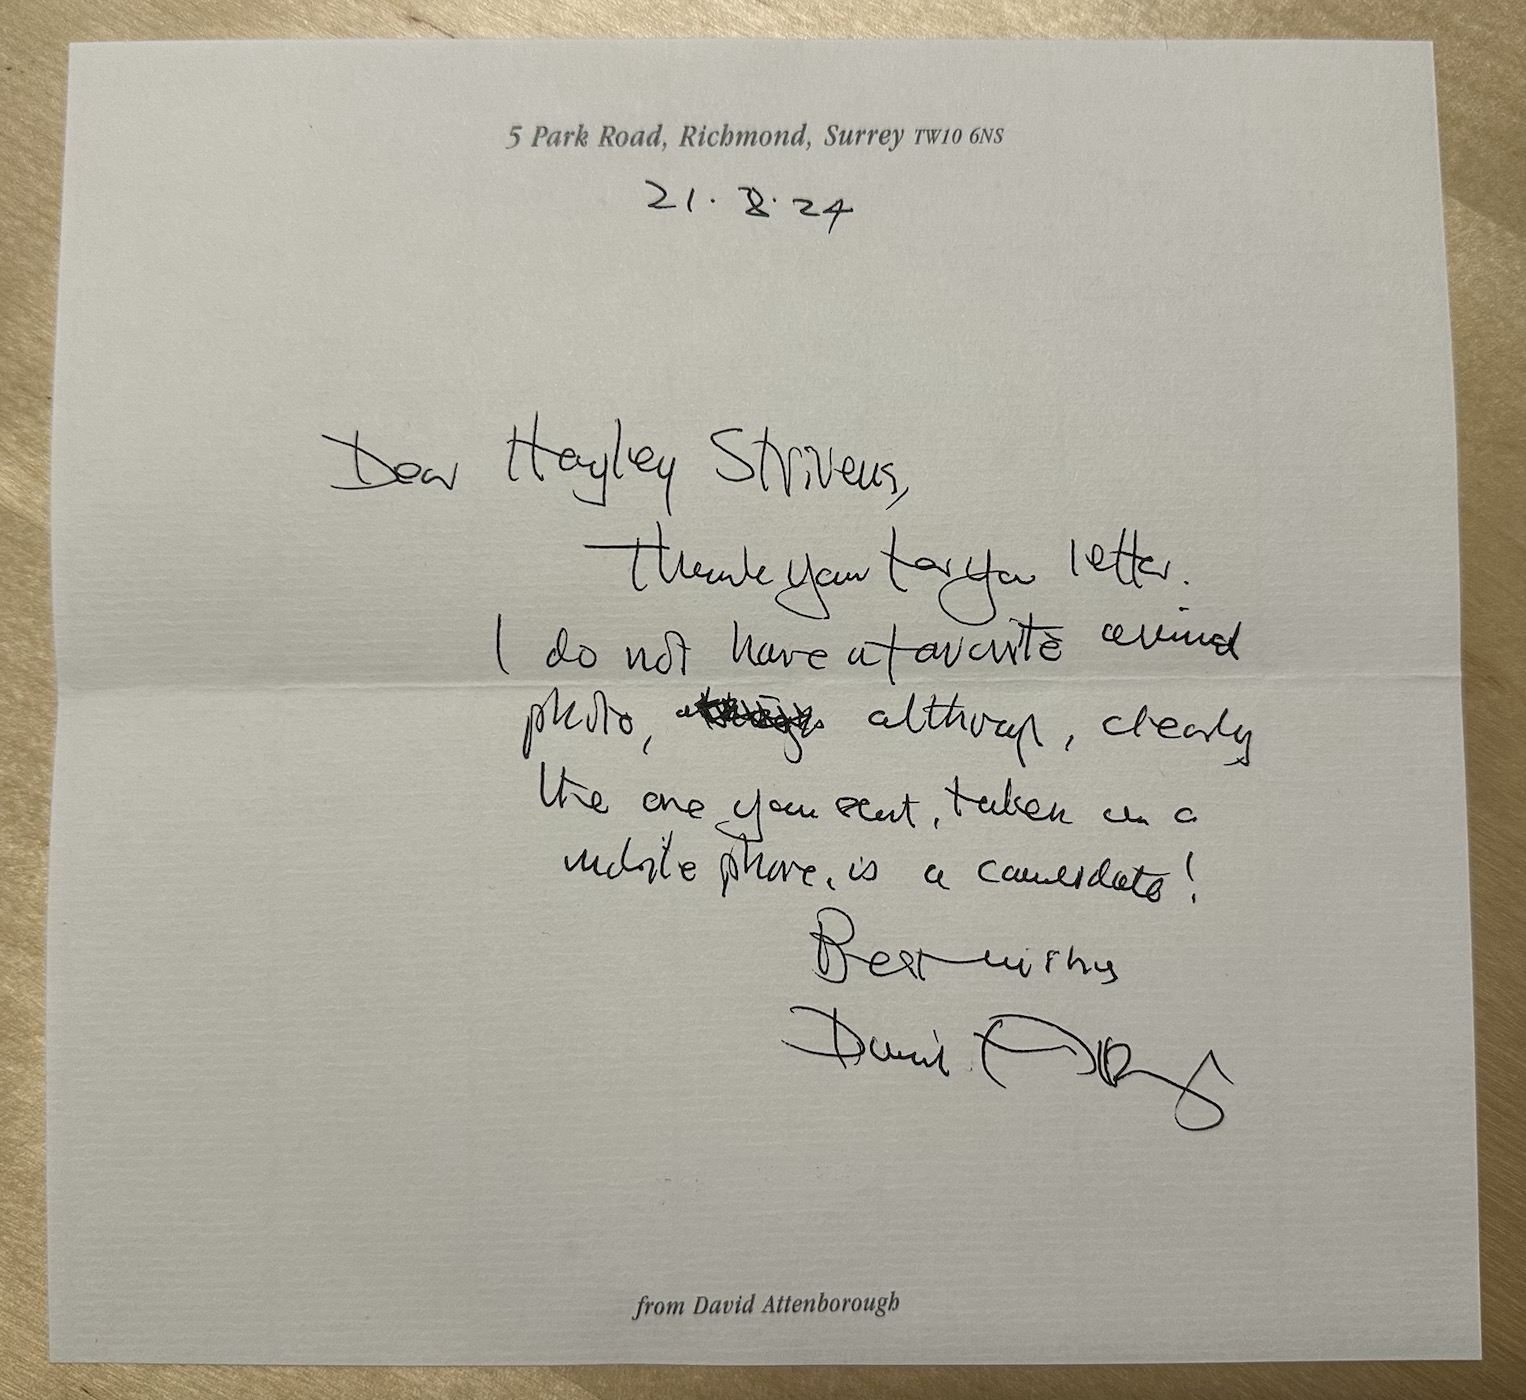 5 Park Road, Richmond, Surrey TW10 6NS
21.8.24
Dear Hayley Strivens,
Thank you for your letter.
I do not have a favourite animal
photo, although, clearly
the one you sent, taken on a
mobile phone, is a candidate!
Best wishes
David Attenborough
from David Attenborough